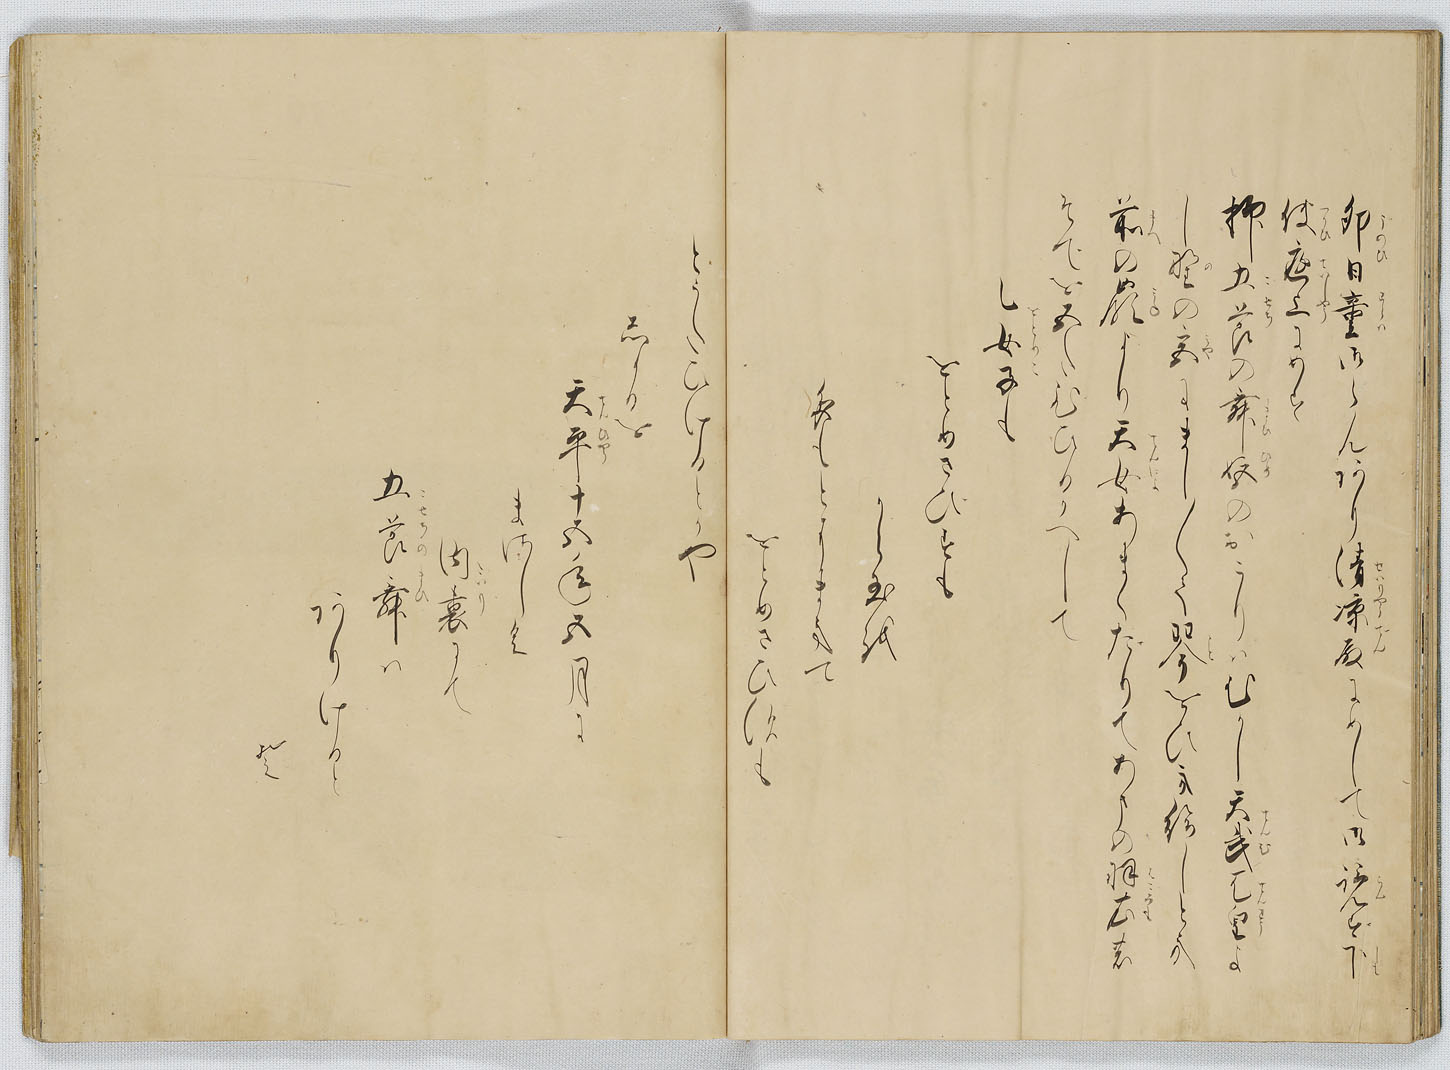 卯日童御らんあり清涼殿にめして御覧ず下
仕庭上にめす
抑五節の舞姫のおこりはむかし天武天皇よ
し野の宮にましまして琴をひき給しとき
前の嶺より天女あまくだりてあまの羽衣の
そでを五たびひるかへして
乙女子も
をとめさびすも
から玉を
袂もとにまきて
をとめさひすも
とうたひけるとや
しかるを
天平十五年五月に
まさしく
内裏にて
五節舞は
ありけると
ぞ